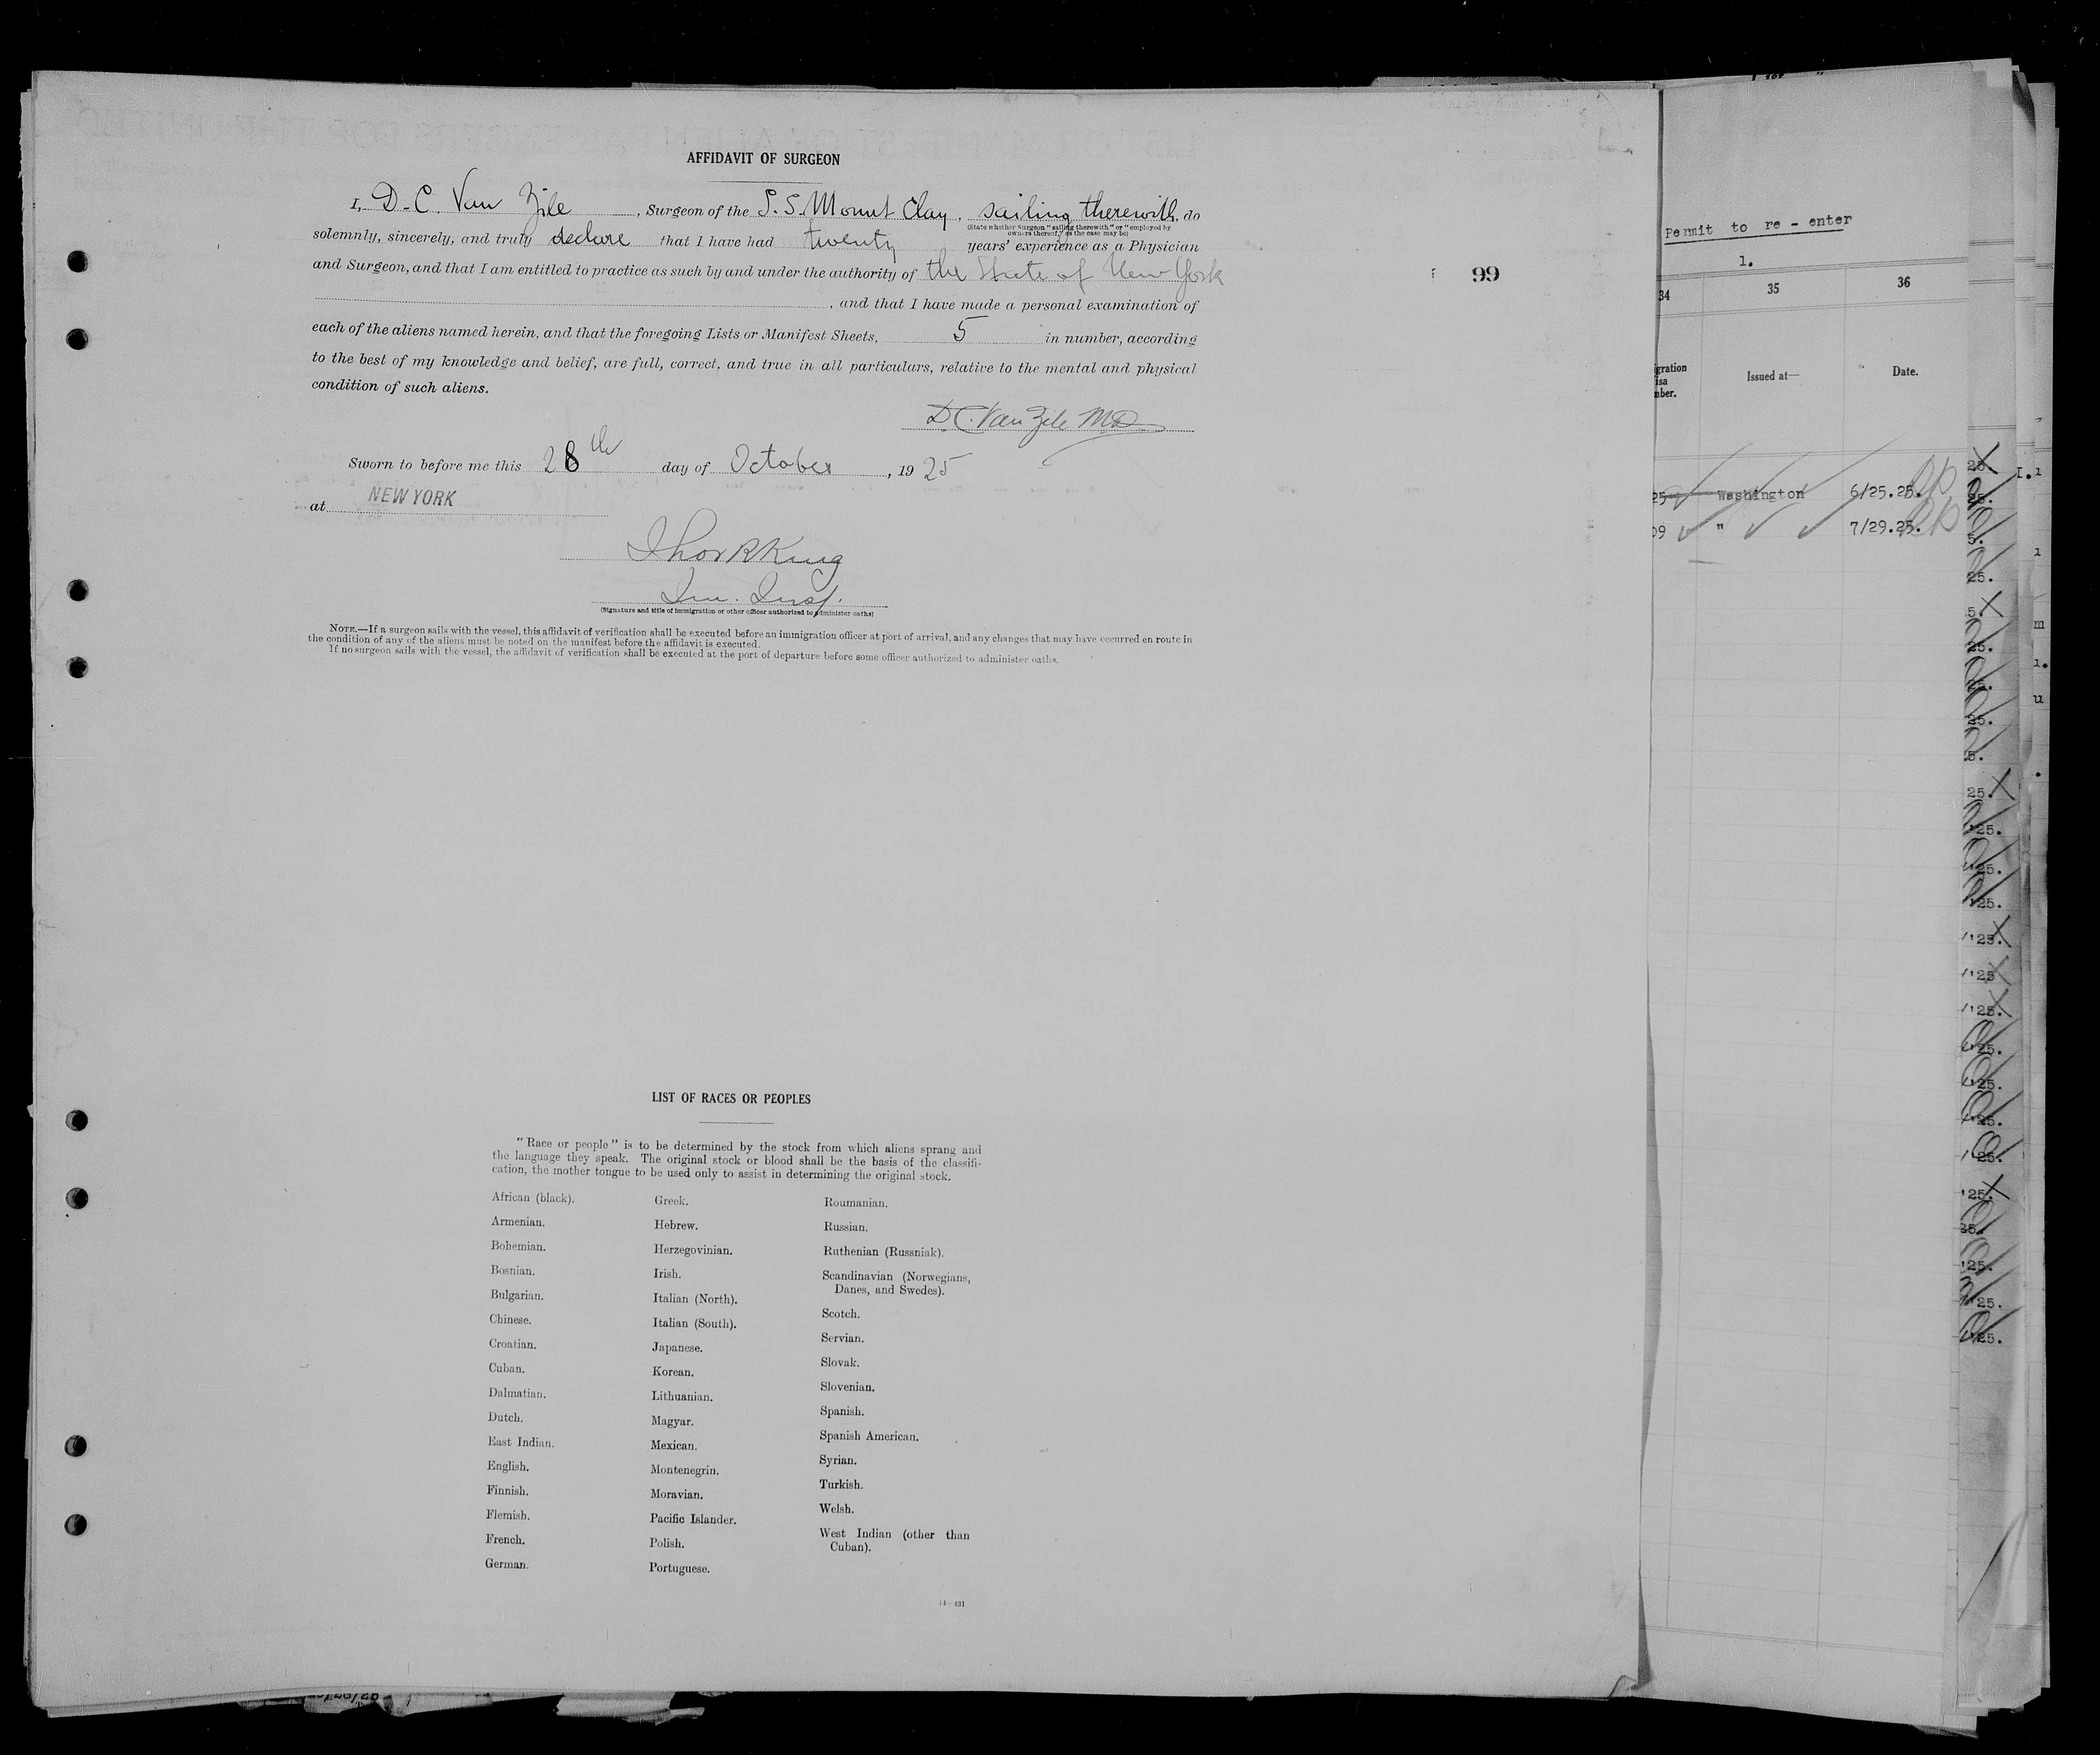 AFFIDAVIT OF SURGEON
I, D. C. Van Zile, Surgeon of the S.S. Mount Clay, sailing therewith, do
(State whether Surgeon "sailing therewith" or "employed by
owners thereof," as the case may be)
solemnly, sincerely, and truly declare that I have had twenty years' experience as a Physician
and Surgeon, and that I am entitled to practice as such by and under the authority of the State of New York
, and that I have made a personal examination of
each of the aliens named herein, and that the foregoing Lists or Manifest Sheets, 5 in number, according
to the best of my knowledge and belief, are full, correct, and true in all particulars, relative to the mental and physical
condition of such aliens.
D C. Van Zile MD
Sworn to before me this 28th day of October, 1925
at NEW YORK
King
Im. Insp.
(Signature and title of immigration or other officer authorized to administer oaths)
NOTE.—If a surgeon sails with the vessel, this affidavit of verification shall be executed before an immigration officer at port of arrival, and any changes that may have occurred en route in
the condition of any of the aliens must be noted on the manifest before the affidavit is executed.
If no surgeon sails with the vessel, the affidavit of verification shall be executed at the port of departure before some officer authorized to administer oaths.
99
LIST OF RACES OR PEOPLES
"Race or people" is to be determined by the stock from which aliens sprang and
the language they speak. The original stock or blood shall be the basis of the classifi-
cation, the mother tongue to be used only to assist in determining the original stock.
African (black).
Armenian.
Bohemian.
Bosnian.
Bulgarian.
Chinese.
Croatian.
Cuban.
Dalmatian.
Dutch.
East Indian.
English.
Finnish.
Flemish.
French.
German.
Greek.
Hebrew.
Herzegovinian.
Irish.
Italian (North).
Italian (South).
Japanese.
Korean.
Lithuanian.
Magyar.
Mexican.
Montenegrin.
Moravian.
Pacific Islander.
Polish.
Portuguese.
Roumanian.
Russian.
Ruthenian (Russniak).
Scandinavian (Norwegians,
Danes, and Swedes).
Scotch.
Servian.
Slovak.
Slovenian.
Spanish.
Spanish American.
Syrian.
Turkish.
Welsh.
West Indian (other than
Cuban).
Permit to re - enter
1.
34 35 36
Issued at—
Date.
Washington 6/25.25.
" 7/29.25.